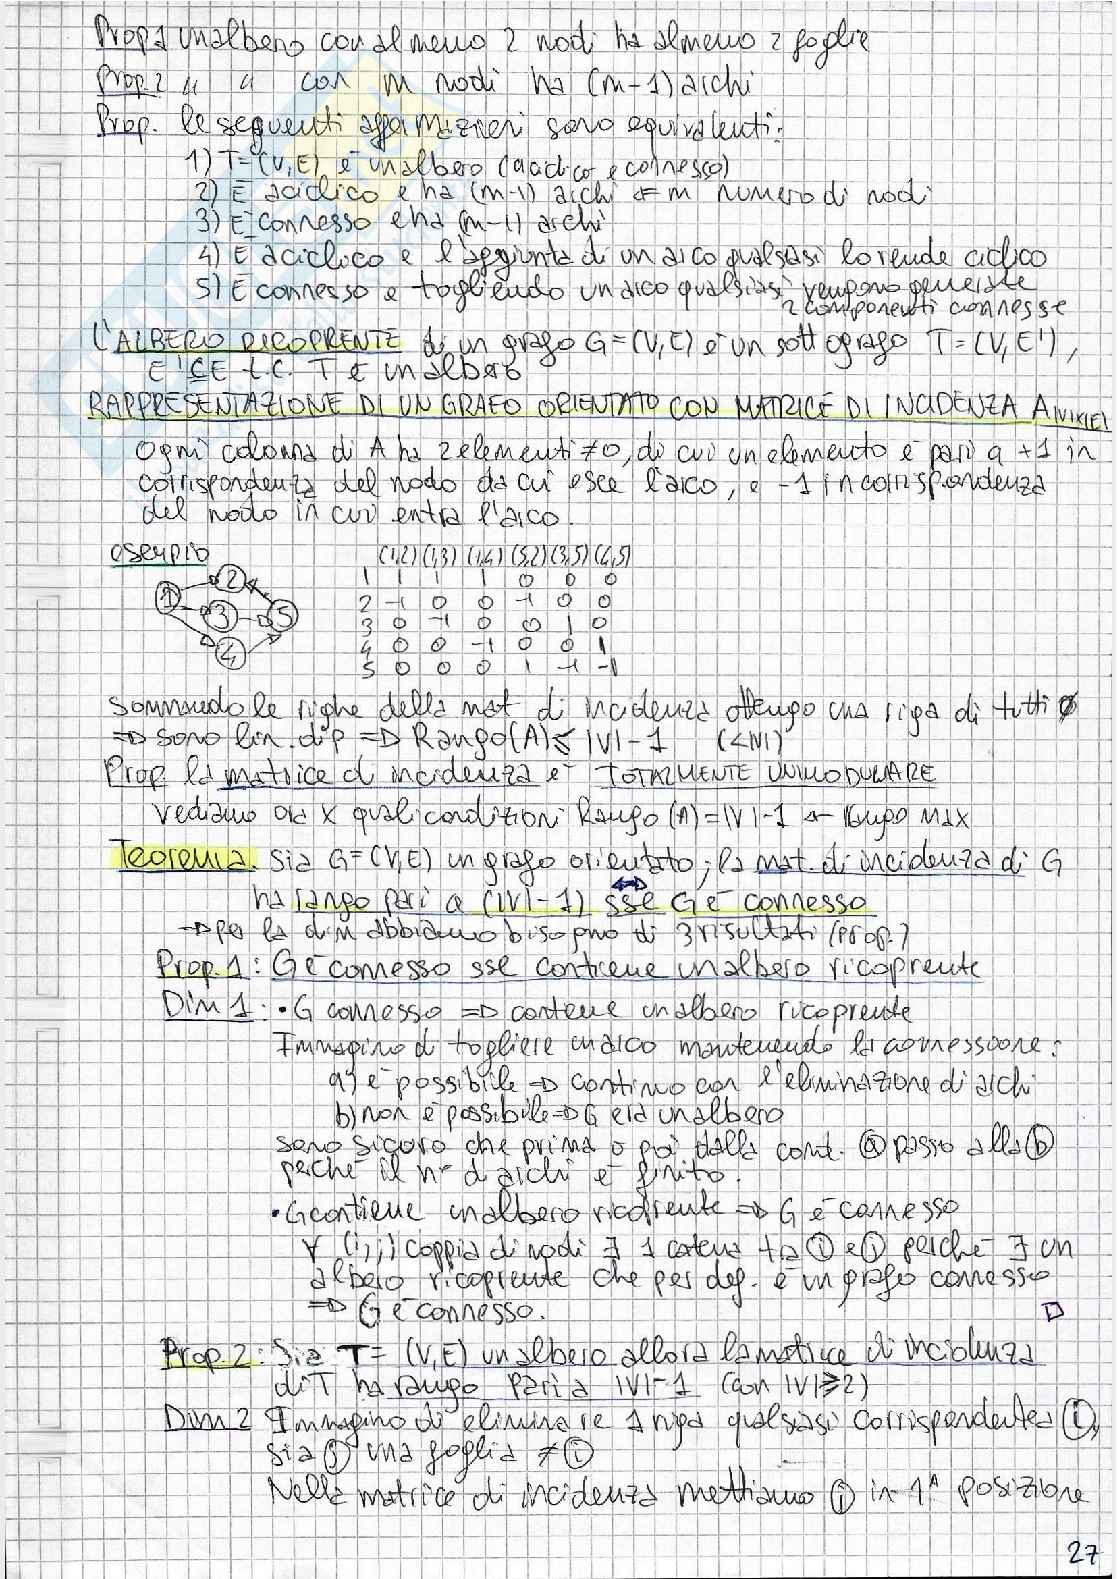 Prop1 un albero con almeno 2 nodi ha almeno 2 foglie
Prop.2 " " con m nodi ha (m-1) archi
Prop. le seguenti affermazioni sono equivalenti:
1) T=(V,E) è un albero (aciclico e connesso)
2) È aciclico e ha (m-1) archi ← m numero di nodi
3) È connesso e ha (m-1) archi
4) È aciclico e l'aggiunta di un arco qualsiasi lo rende ciclico
5) È connesso e togliendo un arco qualsiasi vengono generate
2 componenti connesse
L'ALBERO RICOPRENTE di un grafo G=(V,E) è un sottografo T=(V,E'),
E'⊆E t.c. T è un albero
RAPPRESENTAZIONE DI UN GRAFO ORIENTATO CON MATRICE DI INCIDENZA A|V|x|E|
Ogni colonna di A ha 2 elementi ≠0, di cui un elemento è pari a +1 in
corrispondenza del nodo da cui esce l'arco, e -1 in corrispondenza
del nodo in cui entra l'arco.
esempio (1,2) (1,3) (1,4) (5,2) (3,5) (4,5)
1 1 1 1 0 0 0
2 -1 0 0 -1 0 0
3 0 -1 0 0 1 0
4 0 0 -1 0 0 1
5 0 0 0 1 -1 -1
1 2 3 5 4
sommando le righe della mat di incidenza ottengo una riga di tutti 0
⇒ sono lin. dip ⇒ Rango(A) ≤ |V|-1 (<|V|)
Prop la matrice di incidenza è TOTALMENTE UNIMODULARE
vediamo ora x quali condizioni Rango (A)=|V|-1 ← rango MAX
Teorema. Sia G=(V,E) un grafo orientato; la mat. di incidenza di G
ha rango pari a (|V|-1) sse G è connesso
→ per la dim abbiamo bisogno di 3 risultati (prop.)
Prop.1: G è connesso sse contiene un albero ricoprente
Dim 1: • G connesso ⇒ contiene un albero ricoprente
Immagino di togliere un arco mantenendo la connessione:
a) è possibile ⇒ continuo con l'eliminazione di archi
b) non è possibile ⇒ G era un albero
sono sicuro che prima o poi dalla cond. ⓐ passo alla ⓑ
perché il n° di archi è finito.
• G contiene un albero ricoprente ⇒ G è connesso
∀ (i,j) coppia di nodi ∃ 1 catena tra ⓘ e ⓙ perché ∃ un
albero ricoprente che per def. è un grafo connesso
⇒ G è connesso. □
Prop.2: Sia T= (V,E) un albero allora la matrice di incidenza
di T ha rango pari a |V|-1 (con |V|≥2)
Dim 2 Immagino di eliminare 1 riga qualsiasi corrispondente a ⓘ,
sia ⓙ una foglia ≠ ⓘ
Nella matrice di incidenza mettiamo ⓙ in 1ª posizione
27